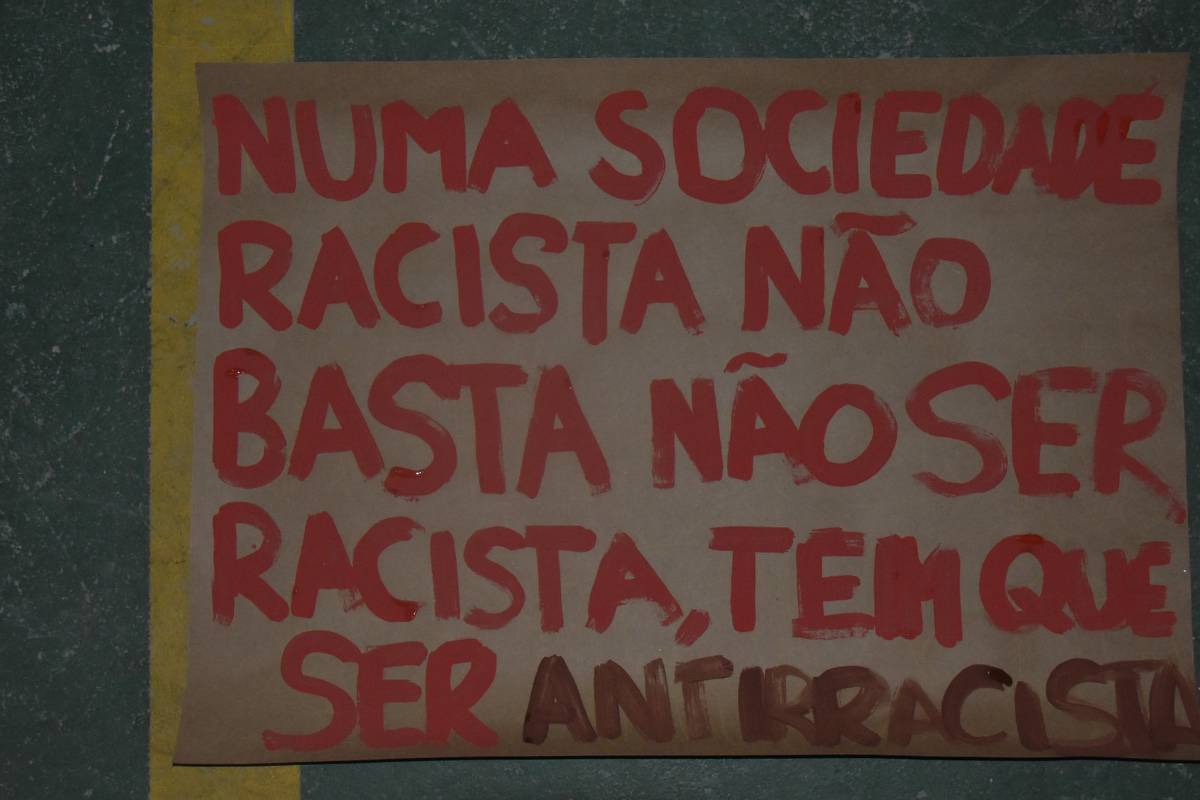 NUMA SOCIEDADE
RACISTA NÃO
BASTA NÃO SER
RACISTA, TEM QUE
SER ANTIRRACISTA